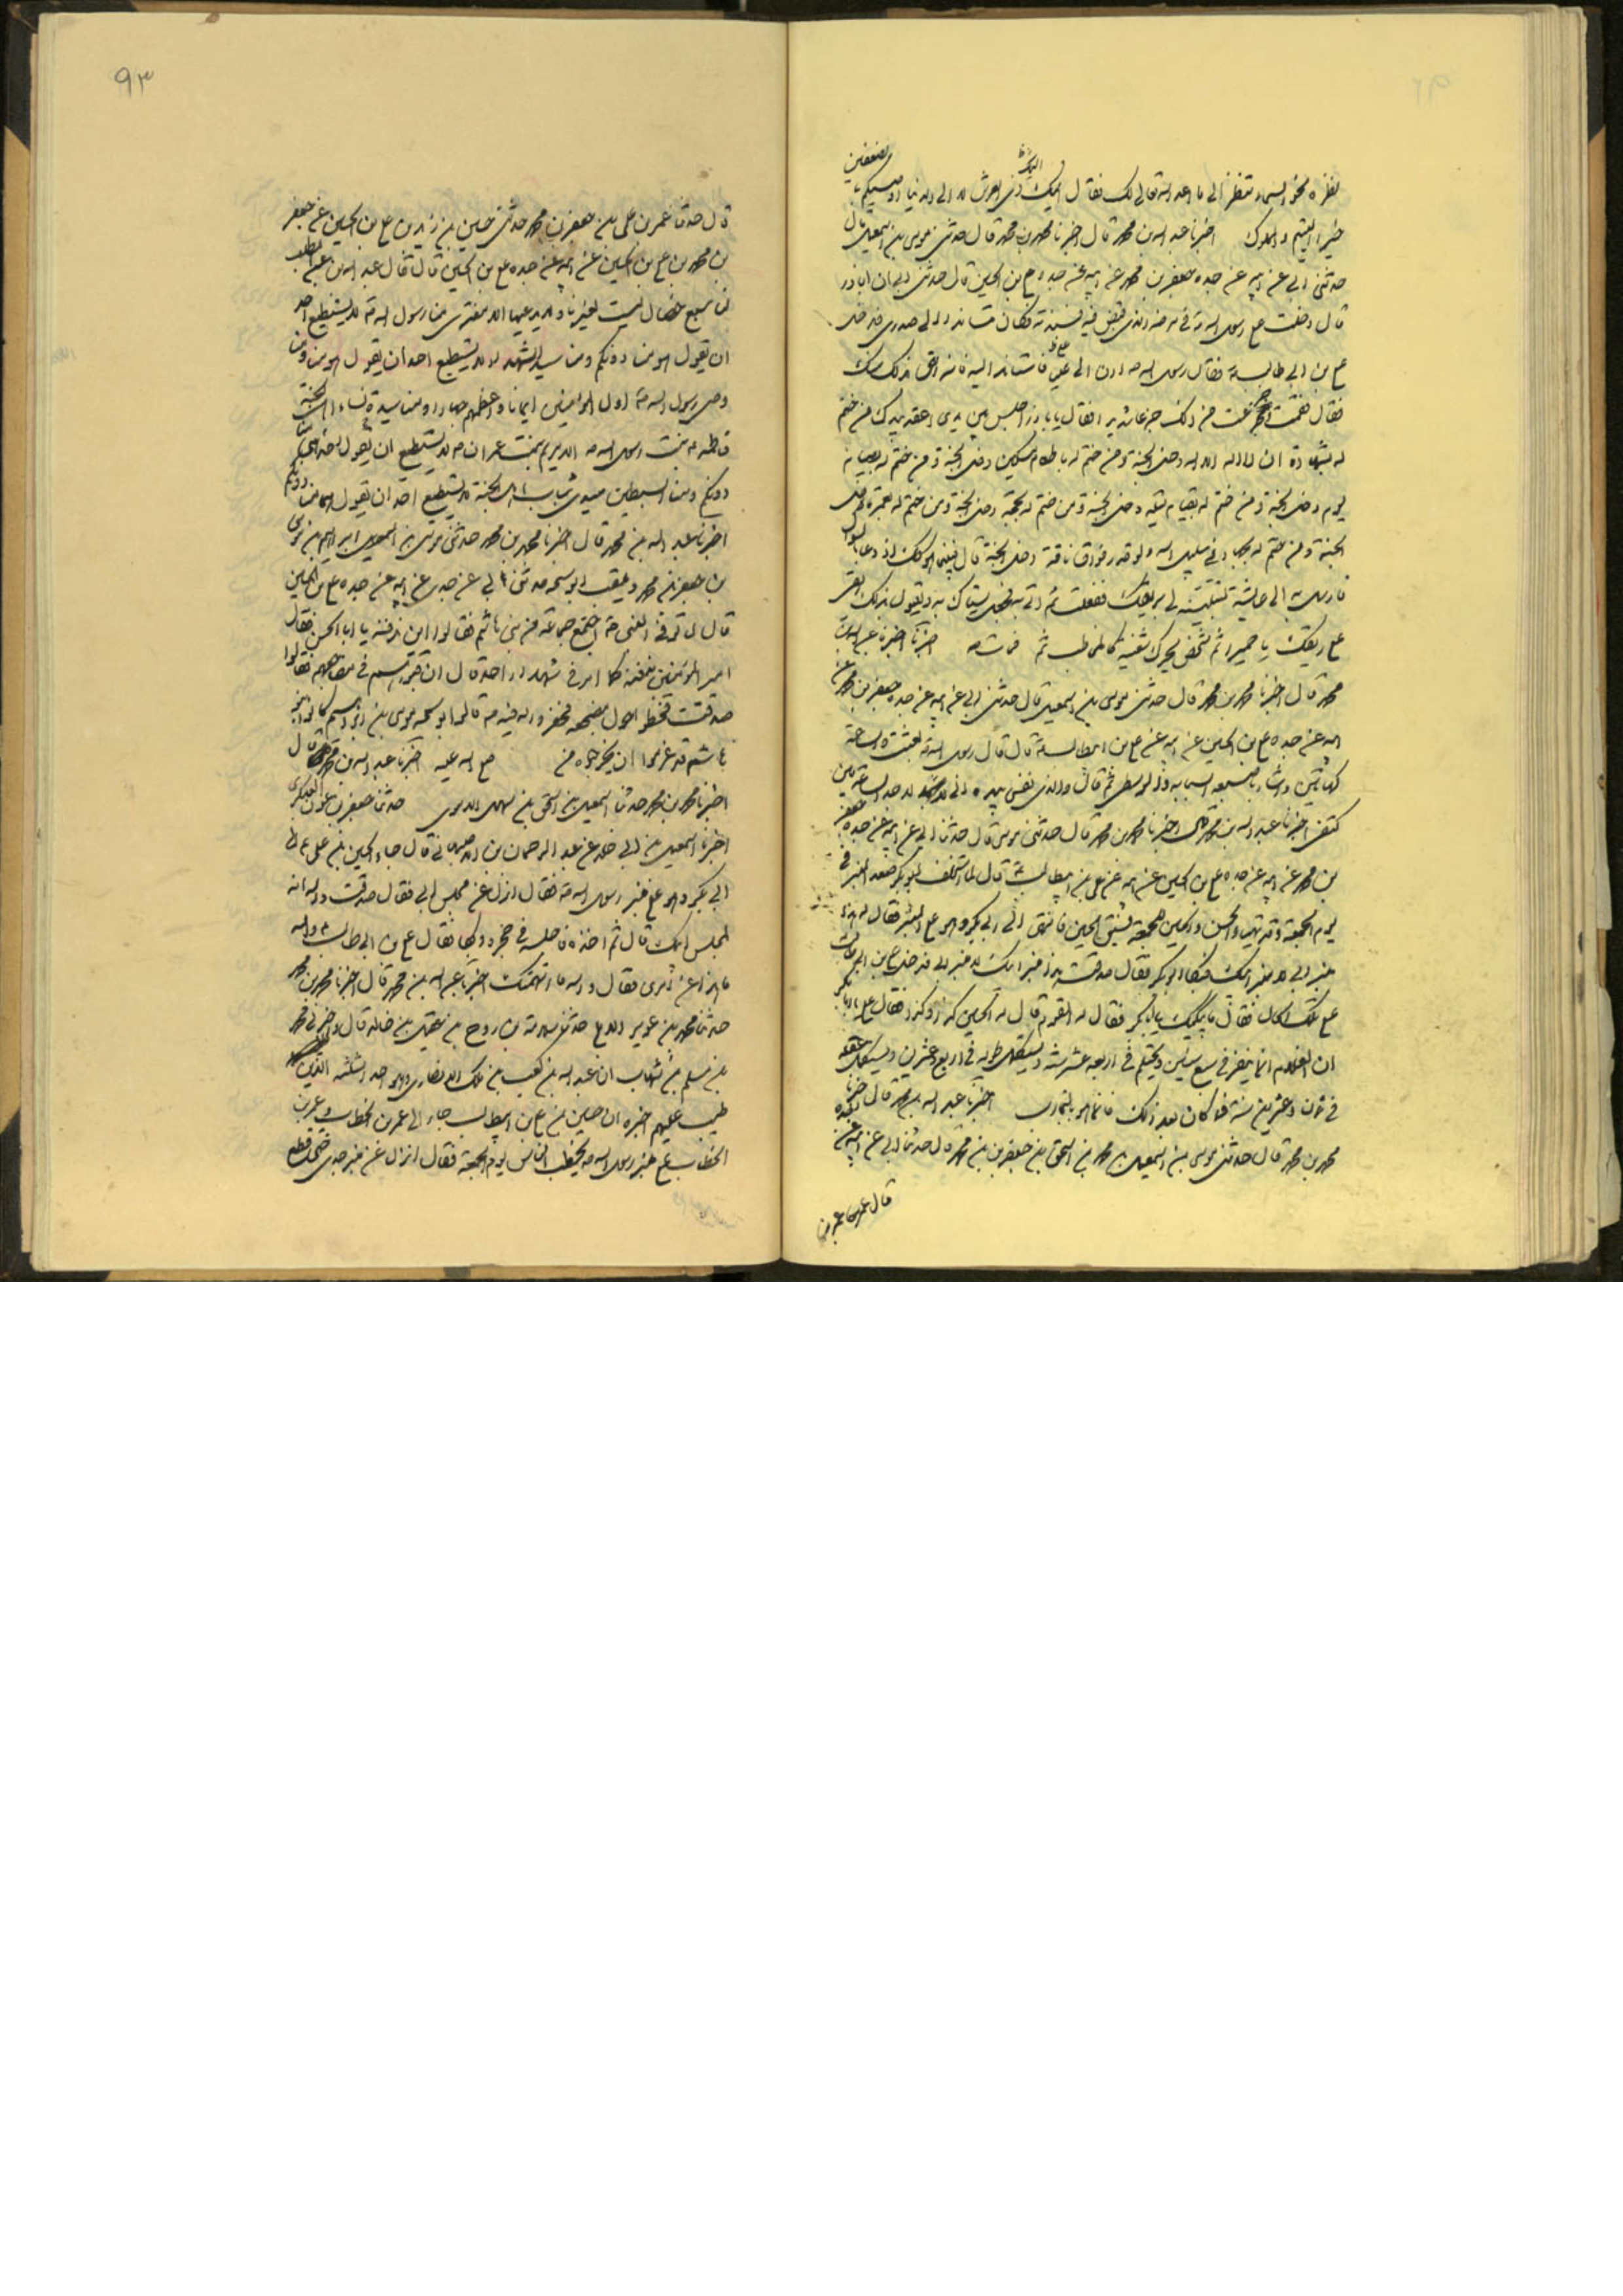 نظره نحو السماء تنظر الى ما اعد الله تعالى لك فقال اليك ذى العرش لا الى الدنيا اوصيكم بالضعيفين
خيرا اليتيم والمملوك اخبرنا عبد الله بن محمد قال اخبرنا محمد بن محمد قال حدثنى موسى بن اسمعيل قال
حدثنى ابى عن ابيه عن جده جعفر بن محمد عن ابيه عن جده ع بن الحسين قال حدثنى ابى ان اباذر
قال دخلت ع رسول الله ص فى مرضه الذى قبض فيه فسندته فكان مستندا الى صدرى فدخل
ع بن ابى طالب فقال رسول الله ص ادن الى على فاستند اليه فانه احق بذلك منك
فقال فقمت وجزعت من ذلك جزعا شديدا فقال يا باذر اجلس بين يدى اعقد بيدك من ختم
له بشهادة ان لا اله الا الله دخل الجنة ومن ختم له باطعام مسكين دخل الجنة ومن ختم له بصيام
يوم دخل الجنة ومن ختم له بقيام ليلة دخل الجنة ومن ختم له بحجة دخل الجنة ومن ختم له بعمرة دخل
الجنة ومن ختم له بجهاد فى سبيل الله ولو قدر فواق ناقة دخل الجنة قال فبينما هو كك اذ دعا بالسواك
فارسل به الى عايشة لتبلينه لى بريقك ففعلت ثم اتى به فجعل يستاك به ويقول بذلك ريقى
ع ريقك يا حميرا ثم شخص يحرك شفتيه كالمخاطب ثم مات ص اخبرنا عبد الله بن
محمد قال اخبرنا محمد بن محمد قال حدثنى موسى بن اسمعيل قال حدثنى ابى عن ابيه عن جده جعفر بن محمد عن
ابيه عن جده ع بن الحسين عن ابيه عن ع بن ابيطالب ع قال قال رسول الله ص بعثت والساعة
كهاتين واشار باصبعيه السبابة والوسطى ثم قال والذى نفسى بيده انى لاجد الساعة بين
كتفى اخبرنا عبد الله بن محمد قال اخبرنا محمد بن محمد قال حدثنى موسى قال حدثنا ابى عن ابيه عن جده جعفر
بن محمد عن ابيه عن جده ع بن الحسين عن ابيه عن على بن ابيطالب ع قال لما استخلف ابو بكر صعد المنبر فى
يوم الجمعة وقد تهيا الحسن والحسين للجمعة فسبق الحسين فانتهى الى ابى بكر وهو ع المنبر فقال له هذا
منبر ابى لا منبر ابيك فبكا ابو بكر فقال صدقت هذا منبر ابيك لا منبر ابى فدخل ع بن ابى طالب
ع تلك الحال فقال ما يبكيك يا ابا بكر فقال له القوم قال له الحسين كذا وكذا فقال على يا ابا بكر
ان الغلام انما يثغر فى سبع سنين ويحتلم فى اربعة عشر سنة ويستكمل طوله فى اربع وعشرين ويستكمل عقله
فى ثمان وعشرين سنة فما كان بعد ذلك فانما هو بالتجارب اخبرنا عبد الله بن محمد قال اخبرنا
محمد بن محمد قال حدثنى موسى بن اسمعيل بن محمد بن اسحق بن جعفر بن محمد قال حدثنا ابى عن ابيه عن جده
قال عمر بن
٩٣
قال حدثنا عمر بن على بن جعفر بن محمد حدثنى حسين بن زيد بن ع بن الحسين عن جعفر
بن محمد بن ع بن الحسين عن ابيه عن جده ع بن الحسين قال قال عبد الله بن عبد المطلب
لنا سبع خصال ليست لغيرنا ولا يدعيها الا مفترى منا رسول الله ص لا يستطيع احد
ان يقول هو من دونكم ومنا سيد الشهداء لا يستطيع احد ان يقول هو من ومنا
وصى رسول الله ص اول المؤمنين ايمانا واعظمهم جهادا ومنا سيدة نساء اهل الجنة
فاطمه ع بنت رسول الله ص الا مريم بنت عمران لا يستطيع ان يقول احد هى
دونكم ومنا السبطين سيدى شباب اهل الجنة لا يستطيع احد ان يقول هما من دونكم
اخبرنا عبد الله بن محمد قال اخبرنا محمد بن محمد حدثنى موسى بن اسمعيل ابراهيم بن موسى
بن جعفر بن محمد ويلقب ابو سبحه حدثنى ابى عن جده عن ابيه عن جده ع بن الحسين
قال لما توفى النبى ص اجتمع جماعة من بنى هاشم فقالوا اين ندفنه يا ابا الحسن فقال
امير المؤمنين ندفنه كما امر فى شهداء احد قال ان قبورهم فى مضاجعهم فقالوا
صدقت فخطوا حول مضجعه فحفروا له فيه ص قال ابو سبحه موسى بن ابراهيم كانوا بنو
هاشم قد عزموا ان يخرجوه من صلى الله عليه اخبرنا عبد الله بن محمد قال
اخبرنا محمد بن محمد حدثنا اسمعيل بن اسحق بن سهل الاموى حدثنا جعفر بن عون العسكرى
اخبرنا اسمعيل بن ابى خلد عن عبد الرحمان بن الاصبهانى قال جاء الحسين بن على ع الى
ابى بكر وهو ع منبر رسول الله ص فقال انزل عن مجلس ابى فقال صدقت والله انه
لمجلس ابيك قال ثم اخذه فاجلسه فى حجره وبكا فقال ع بن ابى طالب ع والله
ما هذا عن امرى فقال والله ما اتهمتك اخبرنا عبد الله بن محمد قال اخبرنا محمد بن محمد
حدثنا محمد بن عزيز الايلى حدثنى سلامة بن روح بن عقيل بن خالد قال اخبرنى محمد
بن مسلم بن شهاب ان عبد الله بن كعب بن ملك الانصارى وهو احد الثلثه الذين
تيب عليهم اخبره ان حسين بن ع بن ابيطالب جاء الى عمر بن الخطاب وعمر بن
الخطاب ع منبر رسول الله ص يخطب الناس يوم الجمعة فقال انزل عن منبر جدى